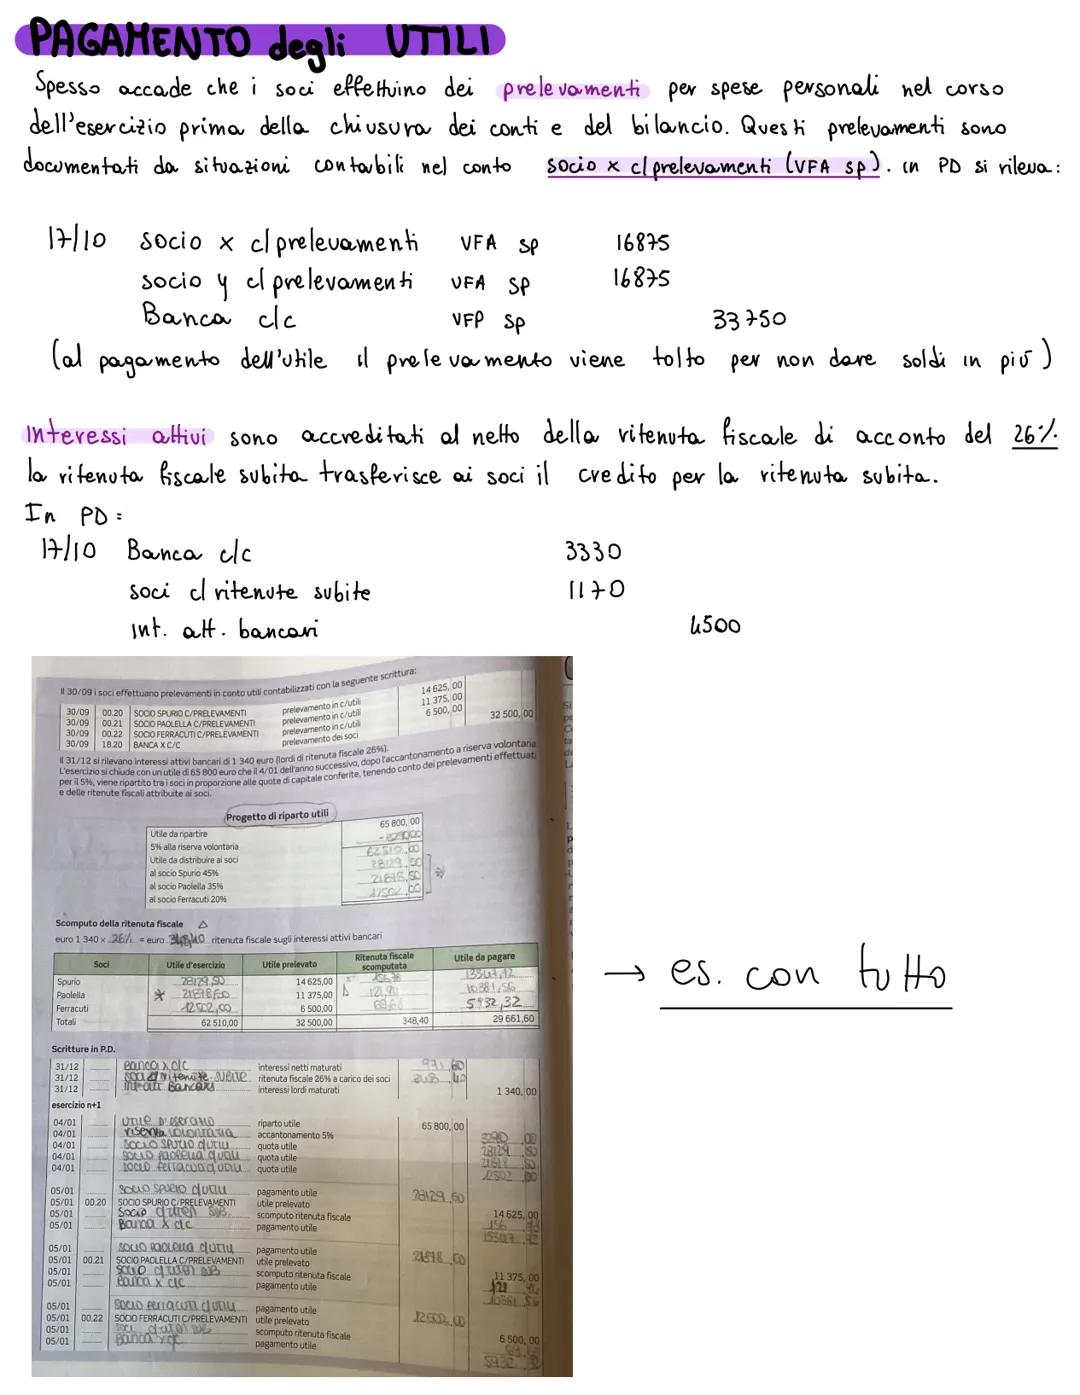 PAGAMENTO degli UTILI
Spesso accade che i soci effettuino dei prelevamenti per spese personali nel corso
dell'esercizio prima della chiusura dei conti e del bilancio. Questi prelevamenti sono
documentati da situazioni contabili nel conto socio x c/prelevamenti (VFA sp). in PD si rileva:
17/10 socio x c/prelevamenti VFA sp 16875
socio y c/prelevamenti VFA SP 16875
Banca c/c VFP Sp 33750
(al pagamento dell'utile il prelevamento viene tolto per non dare soldi in più)
Interessi attivi sono accreditati al netto della ritenuta fiscale di acconto del 26%.
la ritenuta fiscale subita trasferisce ai soci il credito per la ritenuta subita.
In PD:
17/10 Banca c/c 3330
soci c/ritenute subite 1170
int. att. bancari 4500
Il 30/09 i soci effettuano prelevamenti in conto utili contabilizzati con la seguente scrittura:
30/09 00.20 SOCIO SPURIO C/PRELEVAMENTI prelevamento in c/utili 14 625,00
30/09 00.21 SOCIO PAOLELLA C/PRELEVAMENTI prelevamento in c/utili 11 375,00
30/09 00.22 SOCIO FERRACUTI C/PRELEVAMENTI prelevamento in c/utili 6 500,00
30/09 18.20 BANCA X C/C prelevamento dei soci 32 500,00
Il 31/12 si rilevano interessi attivi bancari di 1 340 euro (lordi di ritenuta fiscale 26%).
L'esercizio si chiude con un utile di 65 800 euro che il 4/01 dell'anno successivo, dopo l'accantonamento a riserva volontaria
per il 5%, viene ripartito tra i soci in proporzione alle quote di capitale conferite, tenendo conto dei prelevamenti effettuati
e delle ritenute fiscali attribuite ai soci.
Progetto di riparto utili
Utile da ripartire 65 800,00
5% alla riserva volontaria
Utile da distribuire ai soci 62510,00
al socio Spurio 45% 28129,50
al socio Paolella 35% 21878,50
al socio Ferracuti 20% 12502,00
Scomputo della ritenuta fiscale
euro 1 340 × 26% = euro 348,40 ritenuta fiscale sugli interessi attivi bancari
Soci Utile d'esercizio Utile prelevato Ritenuta fiscale scomputata Utile da pagare
Spurio 28129,50 14 625,00 13347,72
Paolella 21878,50 11 375,00 121,94 10381,56
Ferracuti 12502,00 6 500,00 69,68 5932,32
Totali 62 510,00 32 500,00 348,40 29 661,60
→ es. con tutto
Scritture in P.D.
31/12 Banca x c/c interessi netti maturati 991,60
31/12 soci c/ritenute subite ritenuta fiscale 26% a carico dei soci 348,40
31/12 int. att. Bancari interessi lordi maturati 1 340,00
esercizio n+1
04/01 Utile d'esercizio riparto utile 65 800,00
04/01 riserva volontaria accantonamento 5%
04/01 socio Spurio c/utili quota utile 28129,50
04/01 socio Paolella c/utili quota utile
04/01 socio ferracuti c/utili quota utile 12502,00
05/01 socio spurio c/utili pagamento utile 28129,50
05/01 00.20 SOCIO SPURIO C/PRELEVAMENTI utile prelevato 14 625,00
05/01 scomputo ritenuta fiscale
05/01 Banca x c/c pagamento utile
05/01 socio paolella c/utili pagamento utile 21878,50
05/01 00.21 SOCIO PAOLELLA C/PRELEVAMENTI utile prelevato 11 375,00
05/01 scomputo ritenuta fiscale
05/01 Banca x c/c pagamento utile 10381,56
05/01 socio ferracuti c/utili pagamento utile 12502,00
05/01 00.22 SOCIO FERRACUTI C/PRELEVAMENTI utile prelevato 6 500,00
05/01 scomputo ritenuta fiscale
05/01 Banca x c/c pagamento utile